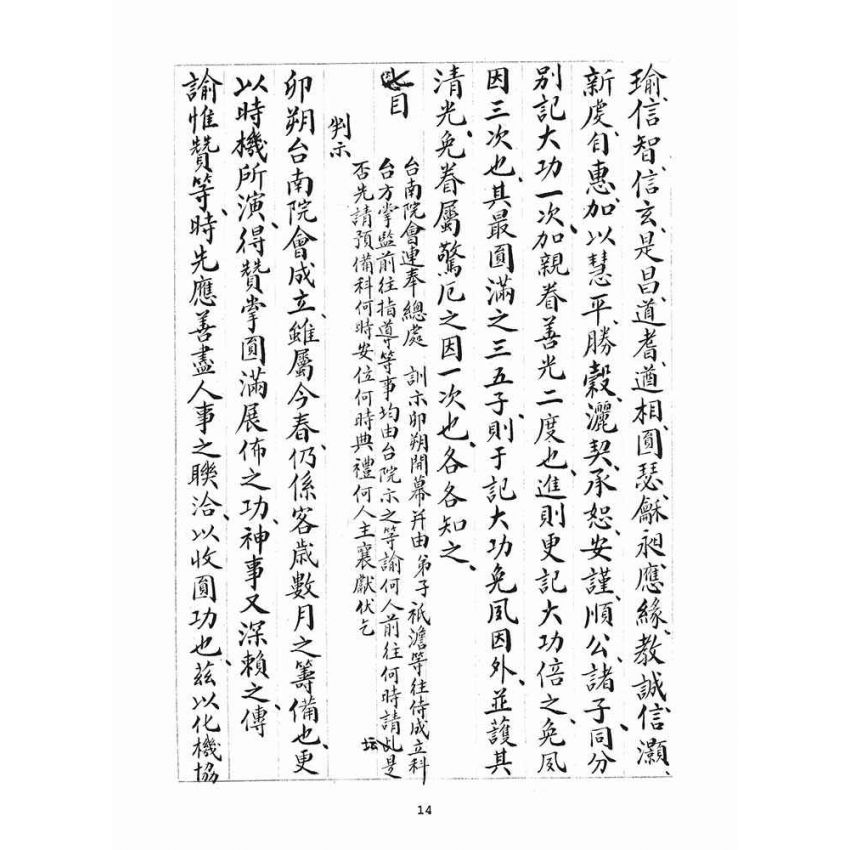 瑜、信智、信玄、是昌、道耆、遒相、圓瑟、龢昶、應緣、教誠、信灝、
新虔、自惠、加以慧平、勝穀、灑契、承恕、安謹、順公、諸子、同分
別記大功一次、加親眷善光二度也、進則更記大功倍之、免風
因三次也、其最圓滿之三五子、則于記大功免風因外、並護其
清光、免眷屬驚厄之因一次也、各各知之、
目
台南院會連奉總處 訓示卯朔開幕并由弟子祇澹等往侍成立科
台方掌監前往指導等事均由台院示之等諭何人前往何時請此是
否先請預備科何時安位何時典禮何人主襄獻伏乞 坛
判示
卯朔台南院會成立、雖屬今春、仍係客歲數月之籌備也、更
以時機所演、得贊掌圓滿展佈之功、神事又深賴之、傳
諭惟贊等、時先應善盡人事之聯洽、以收圓功也、茲以化機協
14